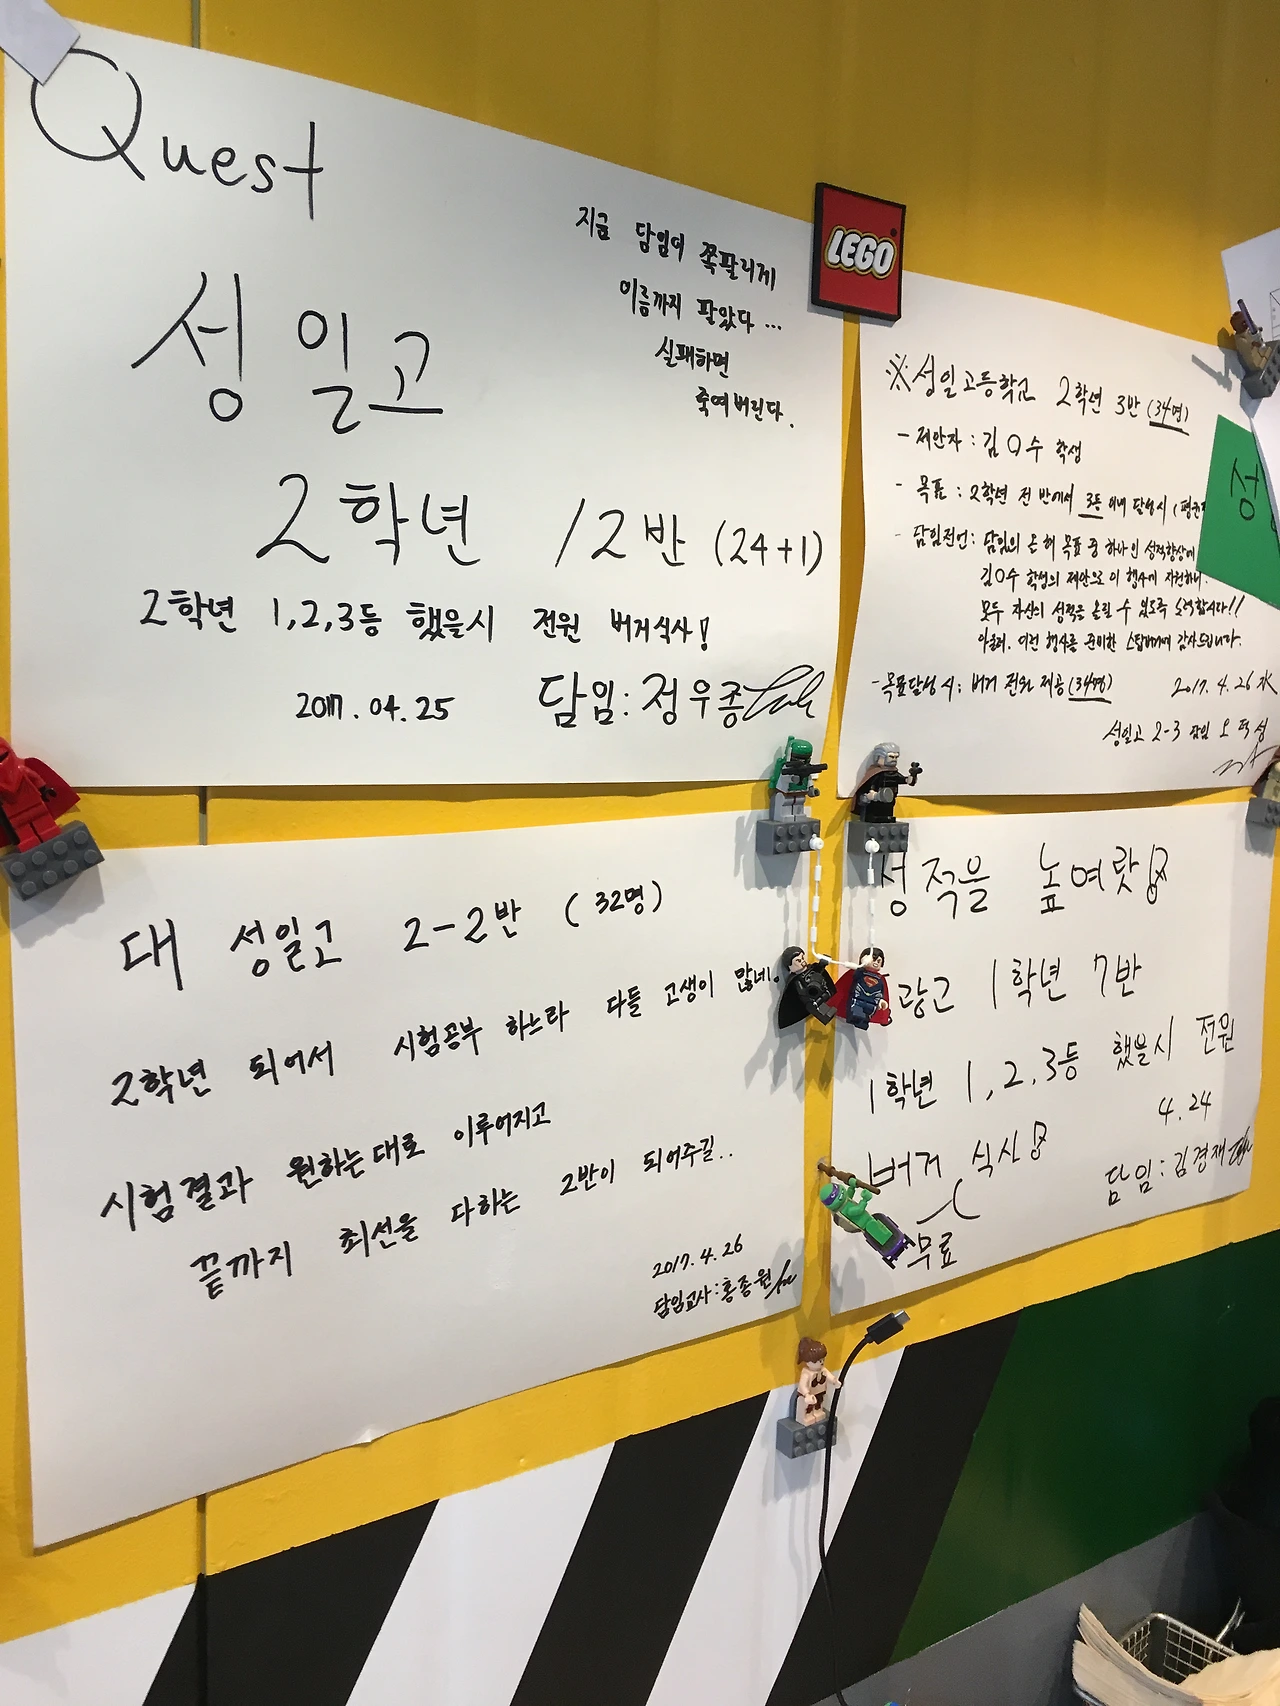 Quest
지금 담임이 쪽팔리게
이름까지 팔았다...
실패하면
죽여버린다.
성일고
2학년 12반 (24+1)
2학년 1,2,3등 했을시 전원 버거식사!
2017.04.25 담임:정우종
LEGO
※성일고등학교 2학년 3반 (34명)
- 제안자 : 김O수 학생
- 목표 : 2학년 전 반에서 3등 이내 달성시 (평균
- 담임전언: 담임의 올해 목표 중 하나인 성적향상에
김O수 학생의 제안으로 이 행사에
모두 자신의 성적을 올릴 수 있도록 노력합시다!!
아울러, 이런 행사를 준비한 감사드립니다.
-목표달성시: 버거 전원 제공(34명) 2017.4.26 水
성일고 2-3 담임 오
성
대 성일고 2-2반 (32명)
2학년 되어서 시험공부 하느라 다들 고생이 많네.
시험결과 원하는대로 이루어지고
끝까지 최선을 다하는 2반이 되어주길..
2017.4.26
담임교사:홍종원
성적을 높여랏!
광고 1학년 7반
1학년 1,2,3등 했을시 전원
버거 식사! 4.24
무료 담임:김경재